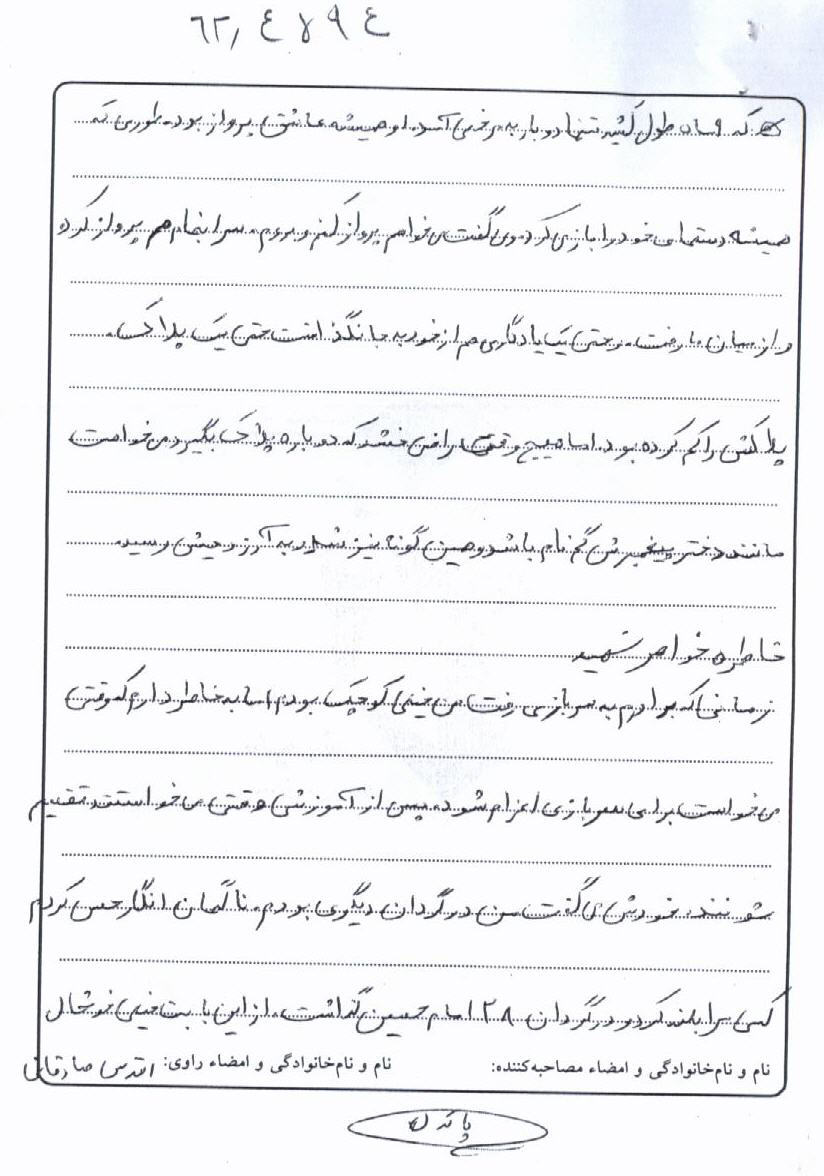 ۶۲٫۴۷۹۴
که ۹ ماه طول کشید تنها دو بار به مرخصی آمد. او همیشه عاشق پرواز بود. طوری که
همیشه دستهای خود را باز می کرد و می گفت می خواهم پرواز کنم و بروم. سرانجام هم پرواز کرد
و از میان ما رفت. و حتی یک یادگاری هم از خود به جا نگذاشت حتی یک پلاک.
پلاکش را گم کرده بود. اما هیچ وقت راضی نشد که دوباره پلاک بگیرد می خواست
مانند دختر پیغمبرش گم نام باشد و همین گونه نیز شد و به آرزویش رسید.
خاطره خواهر شهید
زمانی که برادرم به سربازی رفت من خیلی کوچک بودم اما به خاطر دارم که وقتی
می خواست برای سربازی اعزام شود. پس از آموزش وقتی می خواستند تقسیم
شوند، خودش می گفت من در گردان دیگری بودم. ناگهان انگار حس کردم
کسی مرا بلند کرد و در گردان ۲۸ امام حسین گذاشت. از این بابت خیلی خوشحال
نام و نام خانوادگی و امضاء مصاحبه کننده: نام و نام خانوادگی و امضاء راوی: اقدس صادقیان